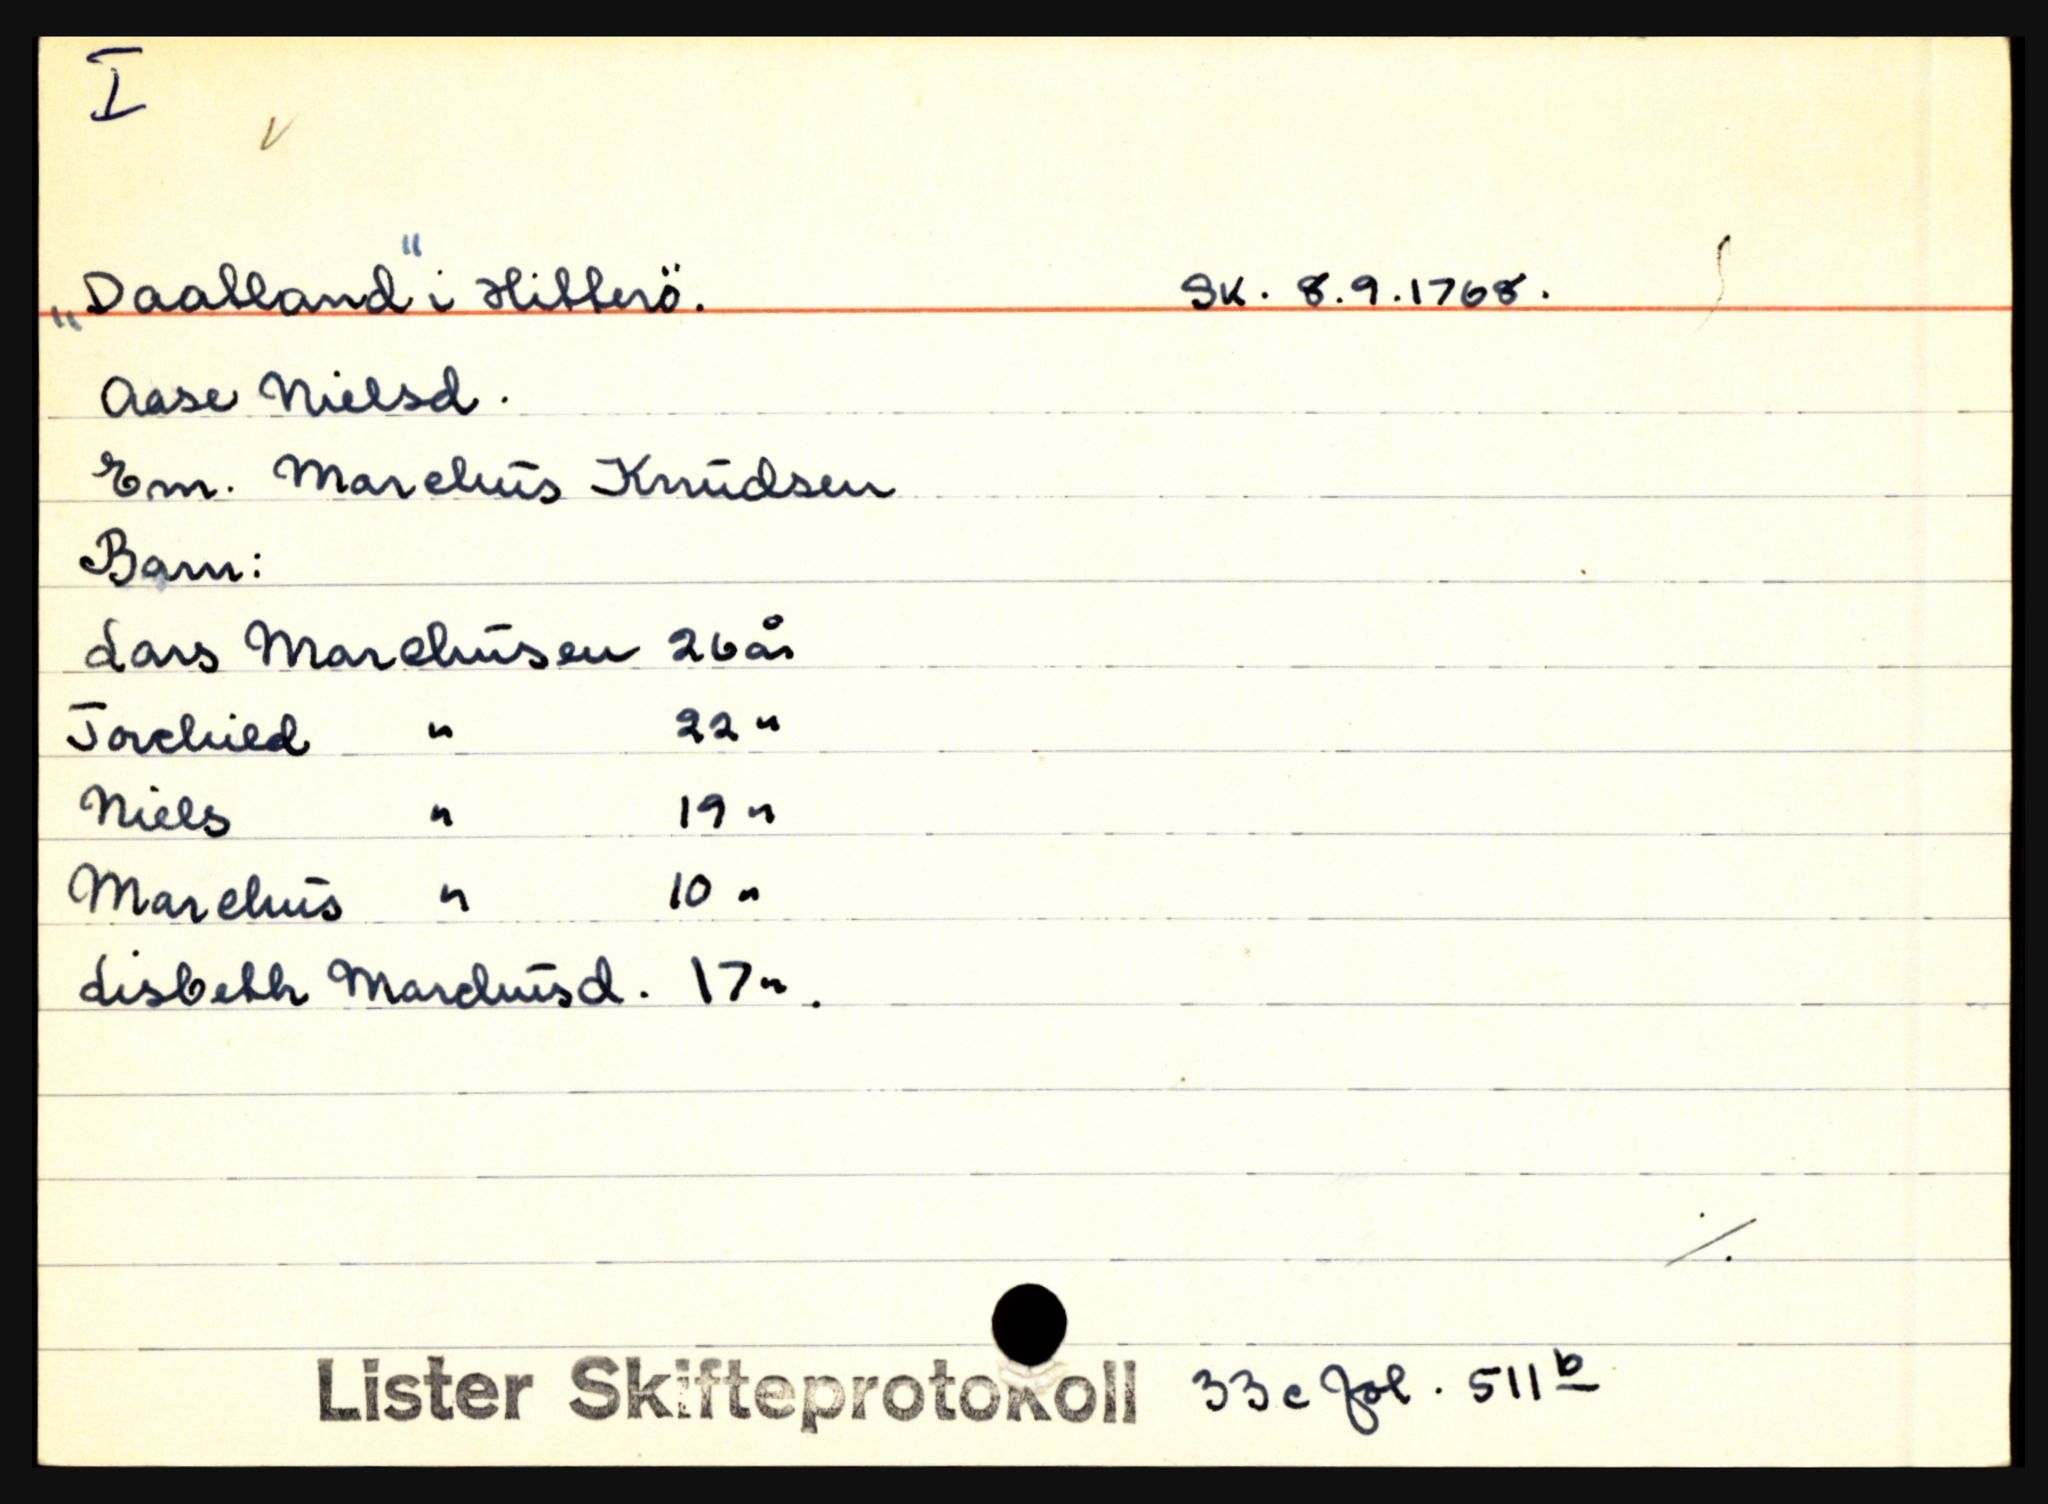 I
v
"Daatland" i Hitterö. Sk. 8.9.1768.
Aase Nielsd.
Em. Marchus Knudsen
Barn:
Lars Marchusen 26 år
Torchild " 22 "
Niels " 19 "
Marchus " 10 "
Lisbeth Marchusd. 17 ".
./.
Lister Skifteprotokoll 33c fol. 511b